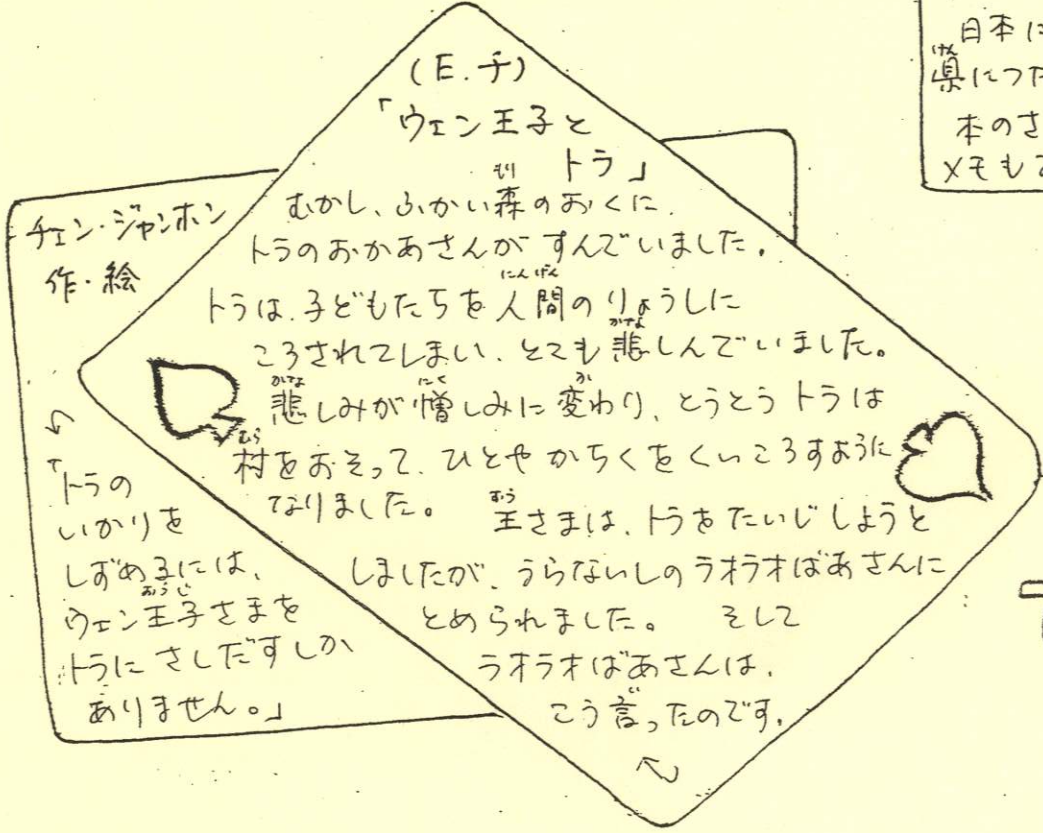 (E.チ)
「ウェン王子と
トラ」
むかし、ふかい森のおくに、
トラのおかあさんがすんでいました。
トラは、子どもたちを人間のりょうしに
ころされてしまい、とても悲しんでいました。
悲しみが憎しみに変わり、とうとうトラは
村をおそって、ひとやかちくをくいころすように
なりました。 王さまは、トラをたいじしようと
しましたが、うらないしのラオラオばあさんに
とめられました。 そして
ラオラオばあさんは、
こう言ったのです。
チェン・ジャンホン
作・絵
「トラの
いかりを
しずめるには、
ウェン王子さまを
トラにさしだすしか
ありません。」
日本に
県につた
本のさ
メモも